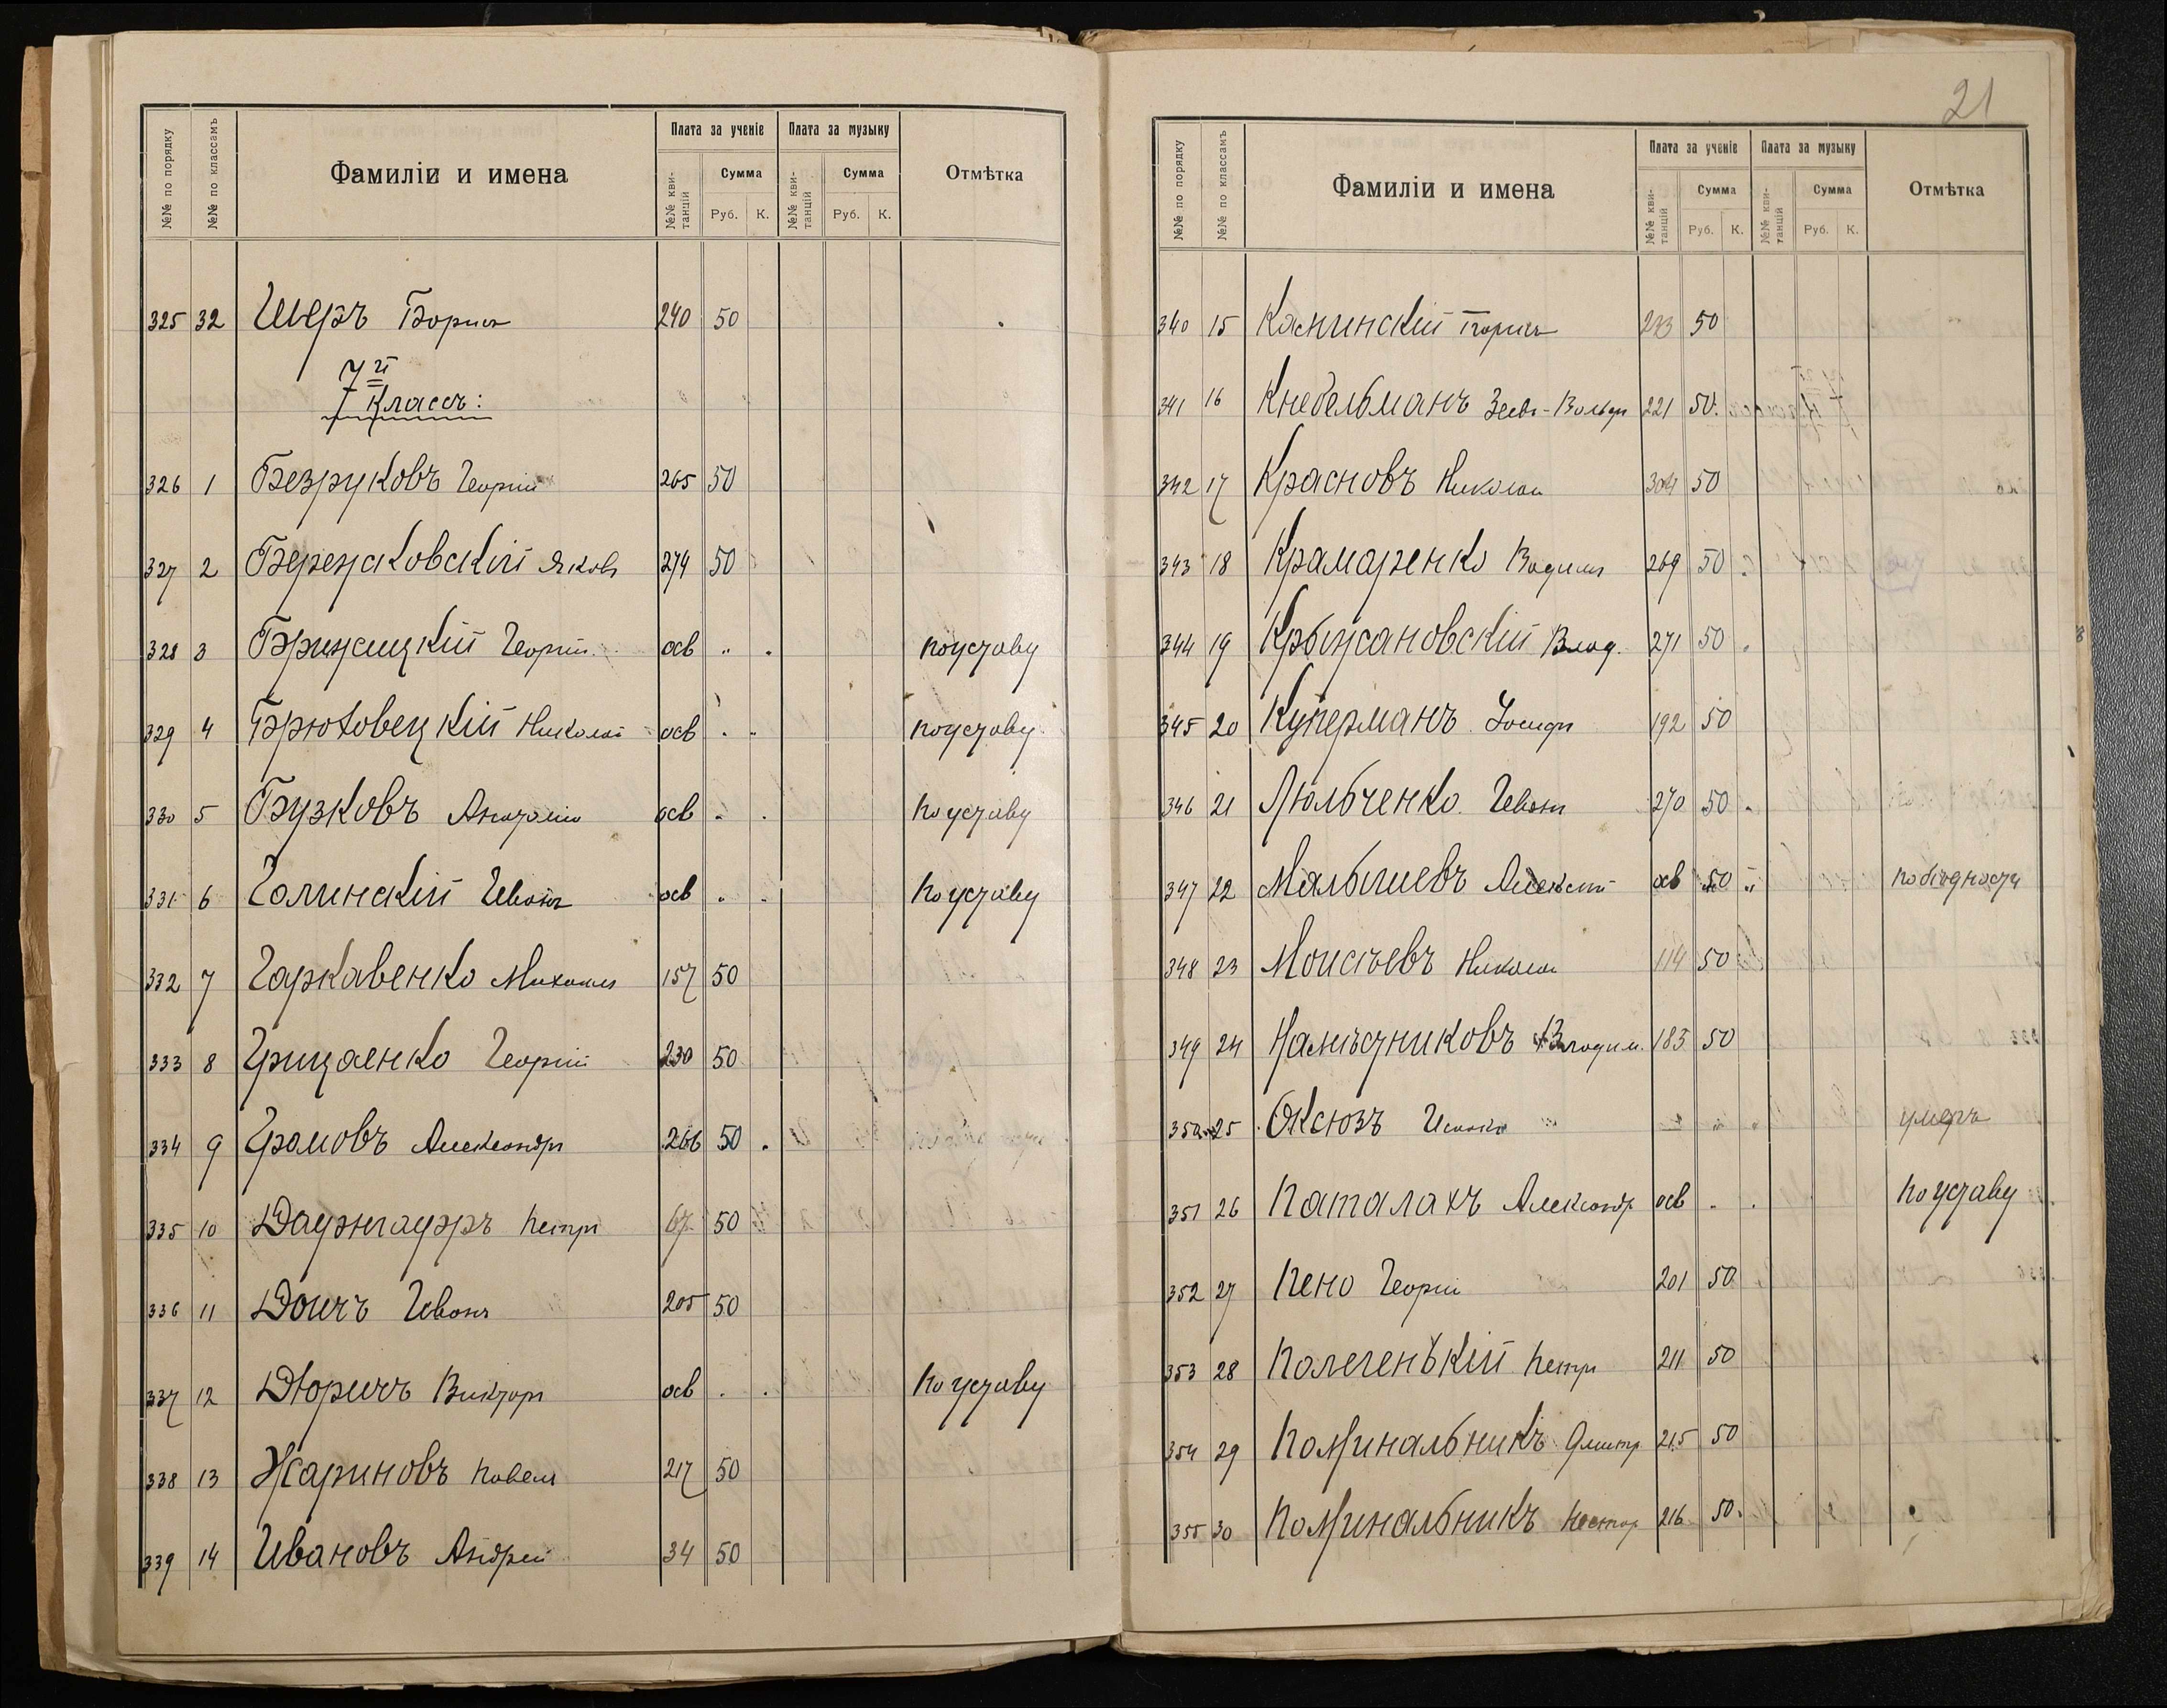 №№ по порядку №№ по классамъ Фамиліи и имена Плата за ученіе Плата за музыку Отмѣтка
№№ кви-танцій Сумма №№ кви-танцій Сумма
Руб. К. Руб. К.
325 32 Шеръ Борисъ 240 50
7й
Классъ:
326 1 Безруковъ Георгій 265 50
327 2 Яковъ 274 50
328 3 Георгій осв " . по уставу
329 4 Николай осв . .. по уставу
330 5 Бузковъ Анатолій осв . . по уставу
331 6 Голинскій Иванъ осв . . по уставу
332 7 Гаркавенко Михаилъ 157 50
333 8 Грицаенко Георгій 230 50
334 9 Громовъ Александръ 266 50 .
335 10 Петръ 67 50
336 11 Доичъ Иванъ 205 50
337 12 Дюричъ Викторъ осв . . по уставу
338 13 Жариновъ Павелъ 217 50
339 14 Ивановъ Андрей 34 50
21
№№ по порядку №№ по классамъ Фамиліи и имена Плата за ученіе Плата за музыку Отмѣтка
№№ кви-танцій Сумма №№ кви-танцій Сумма
Руб. К. Руб. К.
340 15 Борисъ 50
341 16 Кнебельманъ Зеевъ-Вольфъ 221 50.
342 17 Красновъ Николай 304 50
343 18 Крамаренко Вадимъ 269 50
344 19 Крыжановскій Влад. 271 50
345 20 Куперманъ Іосифъ 192 50
346 21 Люльченко Иванъ 270 50
347 22 Малышевъ Алексѣй осв 50 " по бѣдности
348 23 Моисѣевъ Николай 114 50
349 24 Намѣстниковъ Владим. 183 50
350 25 Оксюзъ Исаакъ умеръ
351 26 Паталахъ Александр. осв . . по уставу
352 27 Пено Георгій 201 50
353 28 Полегенькій Петръ 211 50
354 29 Поминальникъ Дмитр 215 50
355 30 Поминальникъ Нестор 216 50.